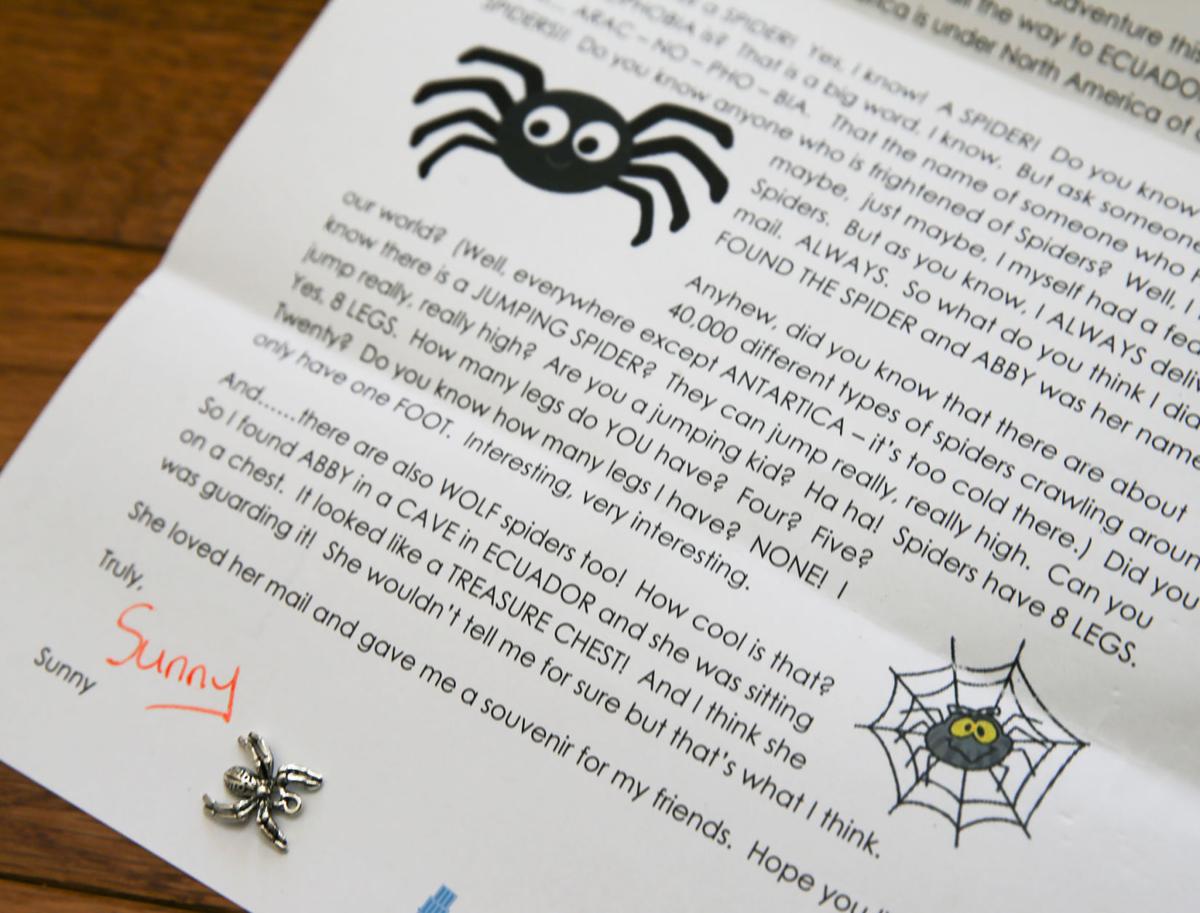 adventure
all the way to
is under North America of
a SPIDER! Yes, I know! A SPIDER! Do you know
is? That is a big word, I know. But ask someone
ARAC – NO – PHO – BIA. That the name of someone who
SPIDERS!! Do you know anyone who is frightened of Spiders? Well, I
maybe, just maybe, I myself had a
Spiders. But as you know, I ALWAYS
mail. ALWAYS. So what do you think I
FOUND THE SPIDER and ABBY was her name
Anyhew, did you know that there are about
40,000 different types of spiders crawling
our world? (Well, everywhere except ANTARTICA – it's too cold there.) Did you
know there is a JUMPING SPIDER? They can jump really, really high. Can you
jump really, really high? Are you a jumping kid? Ha ha! Spiders have 8 LEGS.
Yes, 8 LEGS. How many legs do YOU have? Four? Five?
Twenty? Do you know how many legs I have? NONE! I
only have one FOOT. Interesting, very interesting.
And......there are also WOLF spiders too! How cool is that?
So I found ABBY in a CAVE in ECUADOR and she was sitting
on a chest. It looked like a TREASURE CHEST! And I think she
was guarding it! She wouldn't tell me for sure but that's what I think.
She loved her mail and gave me a souvenir for my friends. Hope you
Truly,
Sunny
Sunny